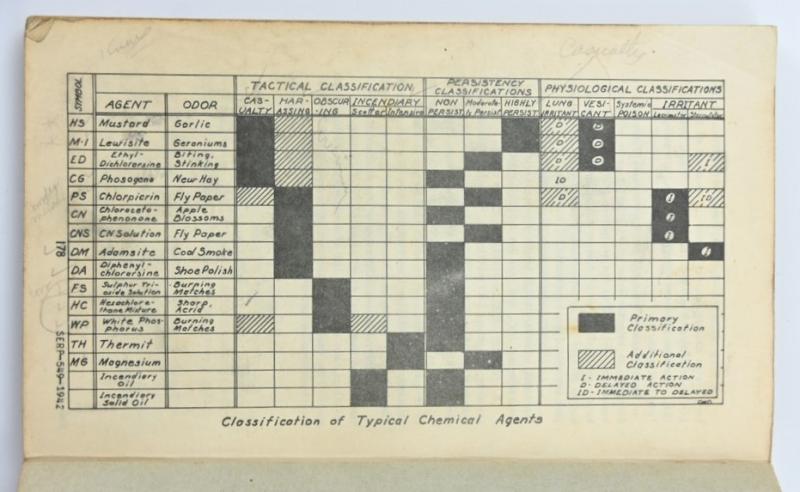 Casualty
SYMBOL
AGENT
ODOR
TACTICAL CLASSIFICATION
PERSISTENCY CLASSIFICATIONS
PHYSIOLOGICAL CLASSIFICATIONS
CAS-UALTY
HAR-ASSING
OBSCUR-ING
INCENDIARY
Scatter
Intensive
NON PERSIST.
Moderate-ly Persist.
HIGHLY PERSIST.
LUNG IRRITANT
VESI-CANT
Systemic POISON
IRRITANT
Lacrimator
HS Mustard Garlic D D
M-1 Lewisite Geraniums D D
ED Ethyl-Dichlorarsine Biting, Stinking D D I
CG Phosogene New Hay ID
PS Chlorpicrin Fly Paper D I ID
CN Chloraceto-phenonone Apple Blossoms I
CNS CN Solution Fly Paper I
DM Adamsite Coal Smoke
DA Diphenyl-chlorarsine Shoe Polish
FS Sulphur Tri-oxide Solution Burning Matches
HC Hexachlore-thane Mixture Sharp, Acrid
WP White Phos-phorus Burning Matches
TH Thermit
MG Magnesium
Incendiary Oil
Incendiary Solid Oil
Primary Classification
Additional Classification
I - IMMEDIATE ACTION
D - DELAYED ACTION
ID - IMMEDIATE TO DELAYED
Classification of Typical Chemical Agents
178
SERP-549-1942